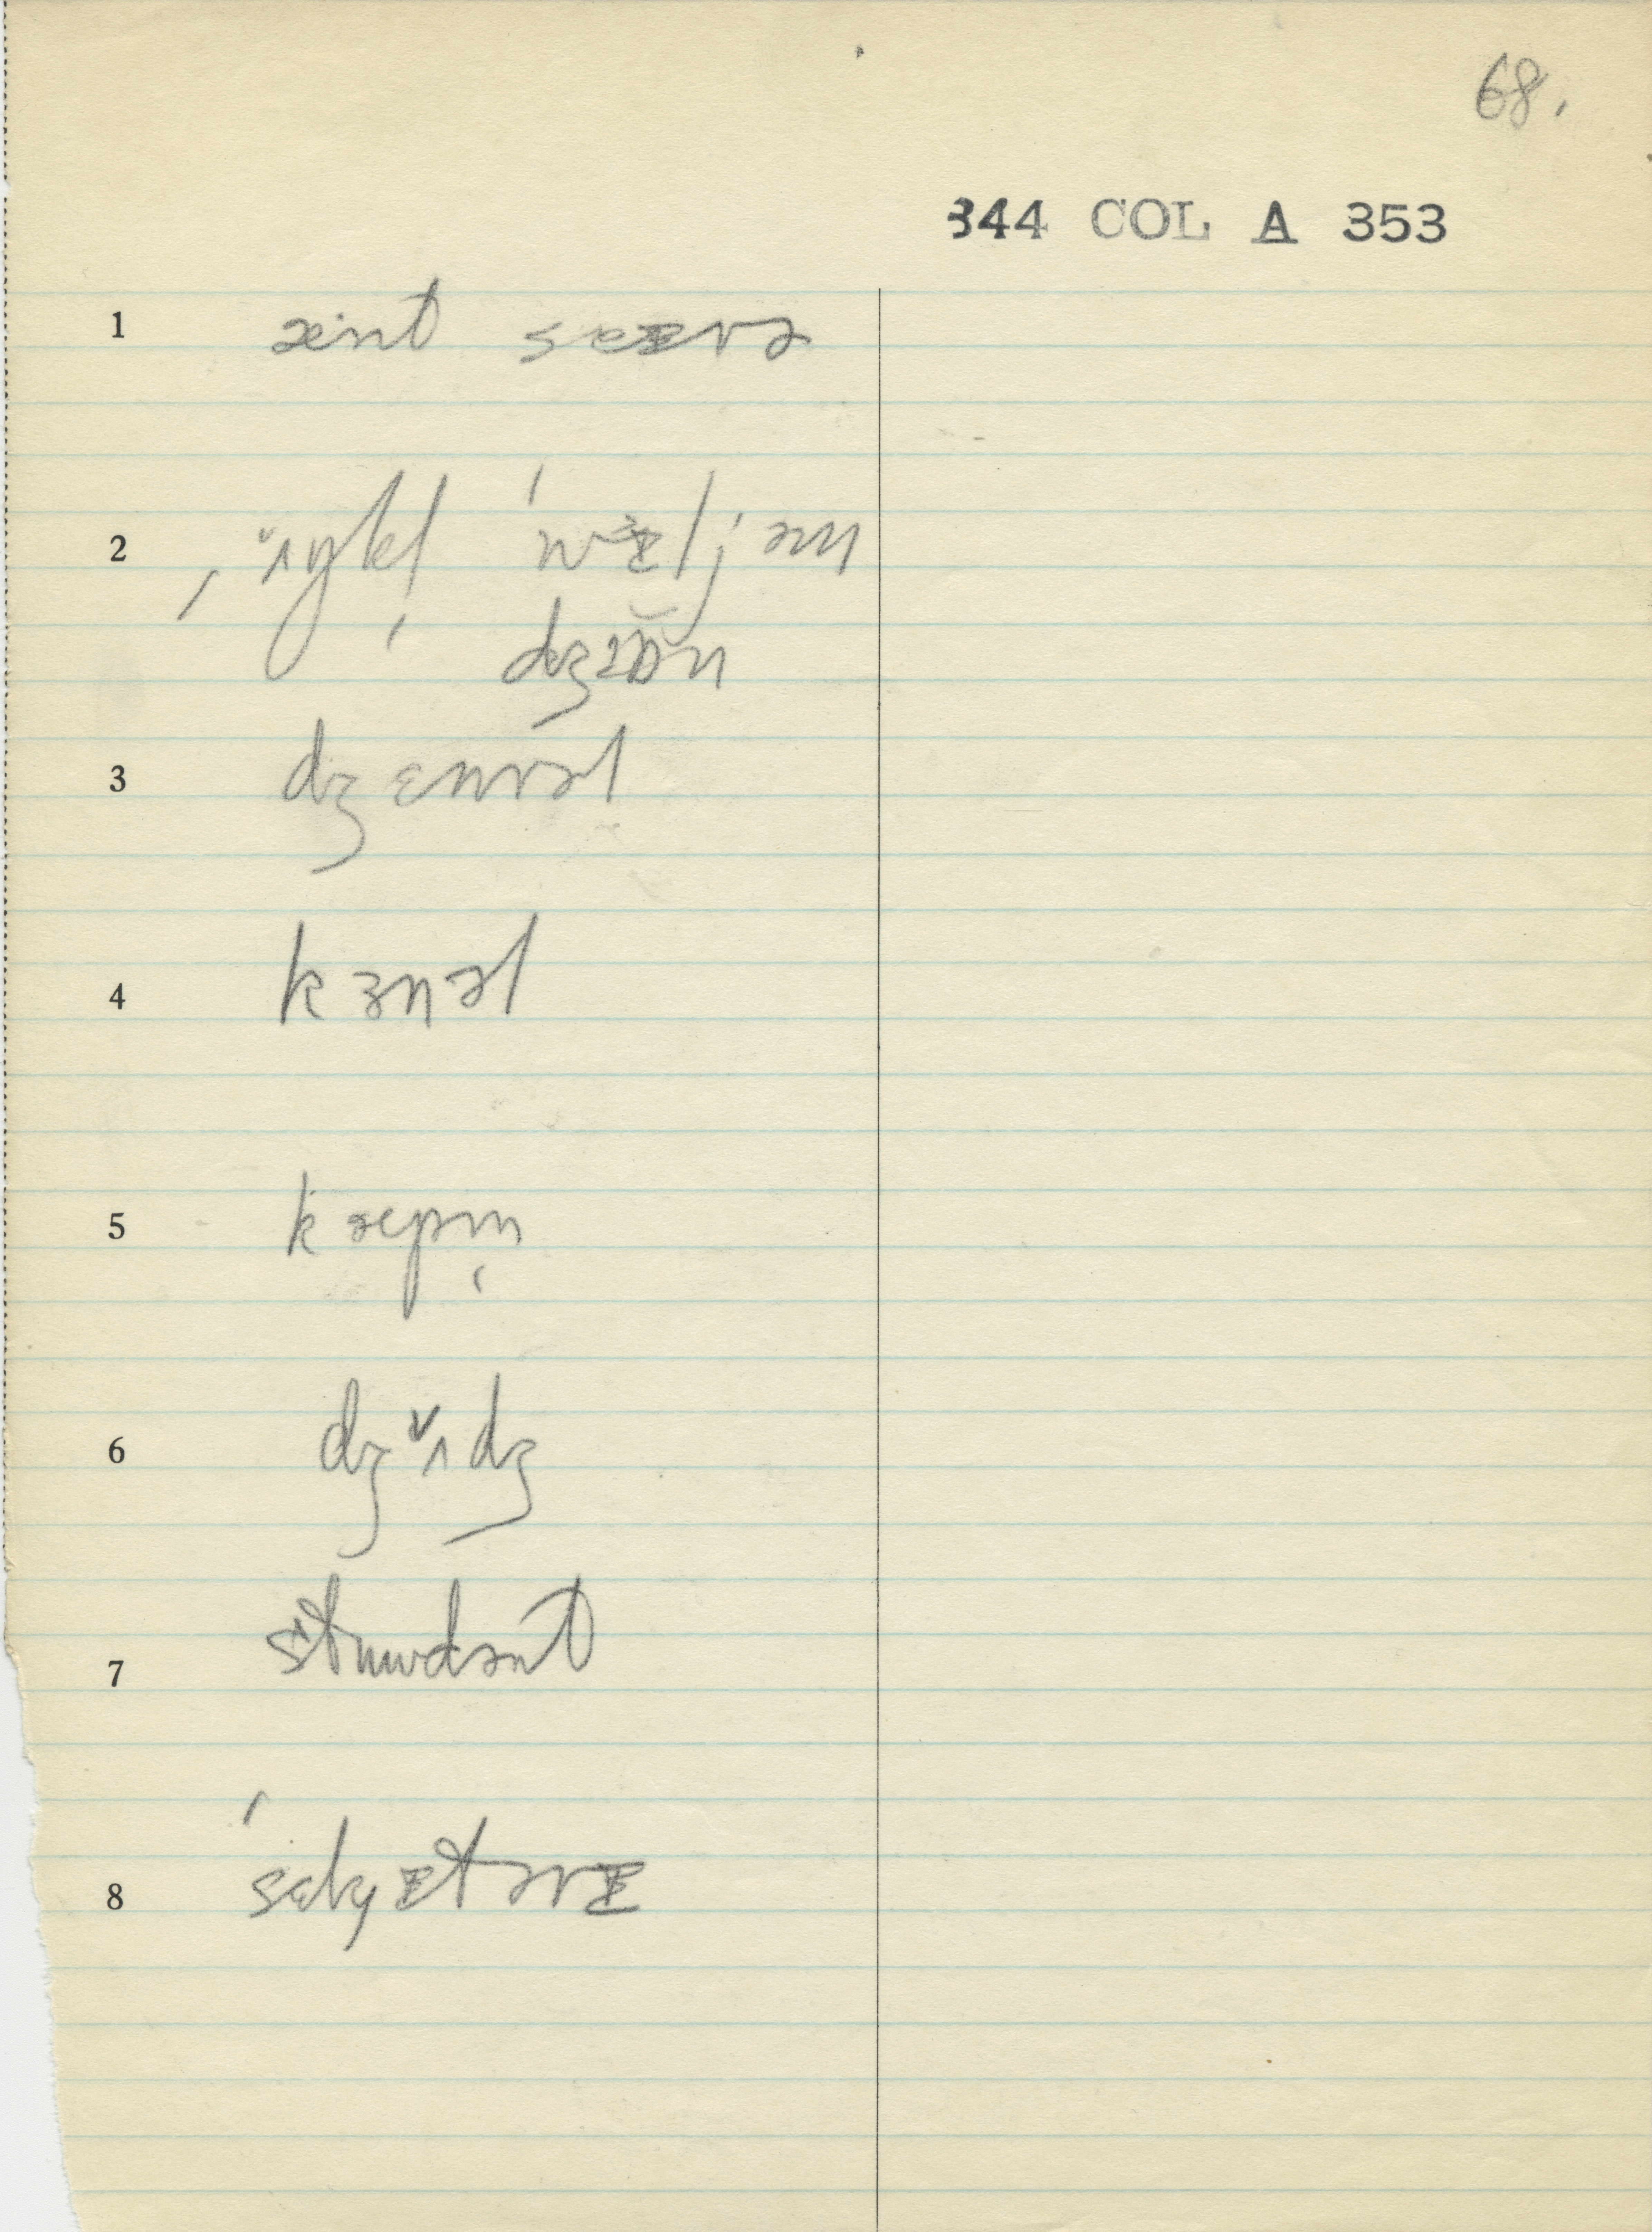 68.
344 COL A 353
1 ænt seᵻrə
2 ˌʌ̆ŋkl̩ ˈwɜᵻljəm
dʒɒ̆n
3 dʒɛnrəl
4 kɜnəl
5 kæpm̩
6 dʒʌ̆dʒ
7 stʉudənt
8 ˈsɛkɹᵻtərᵻ